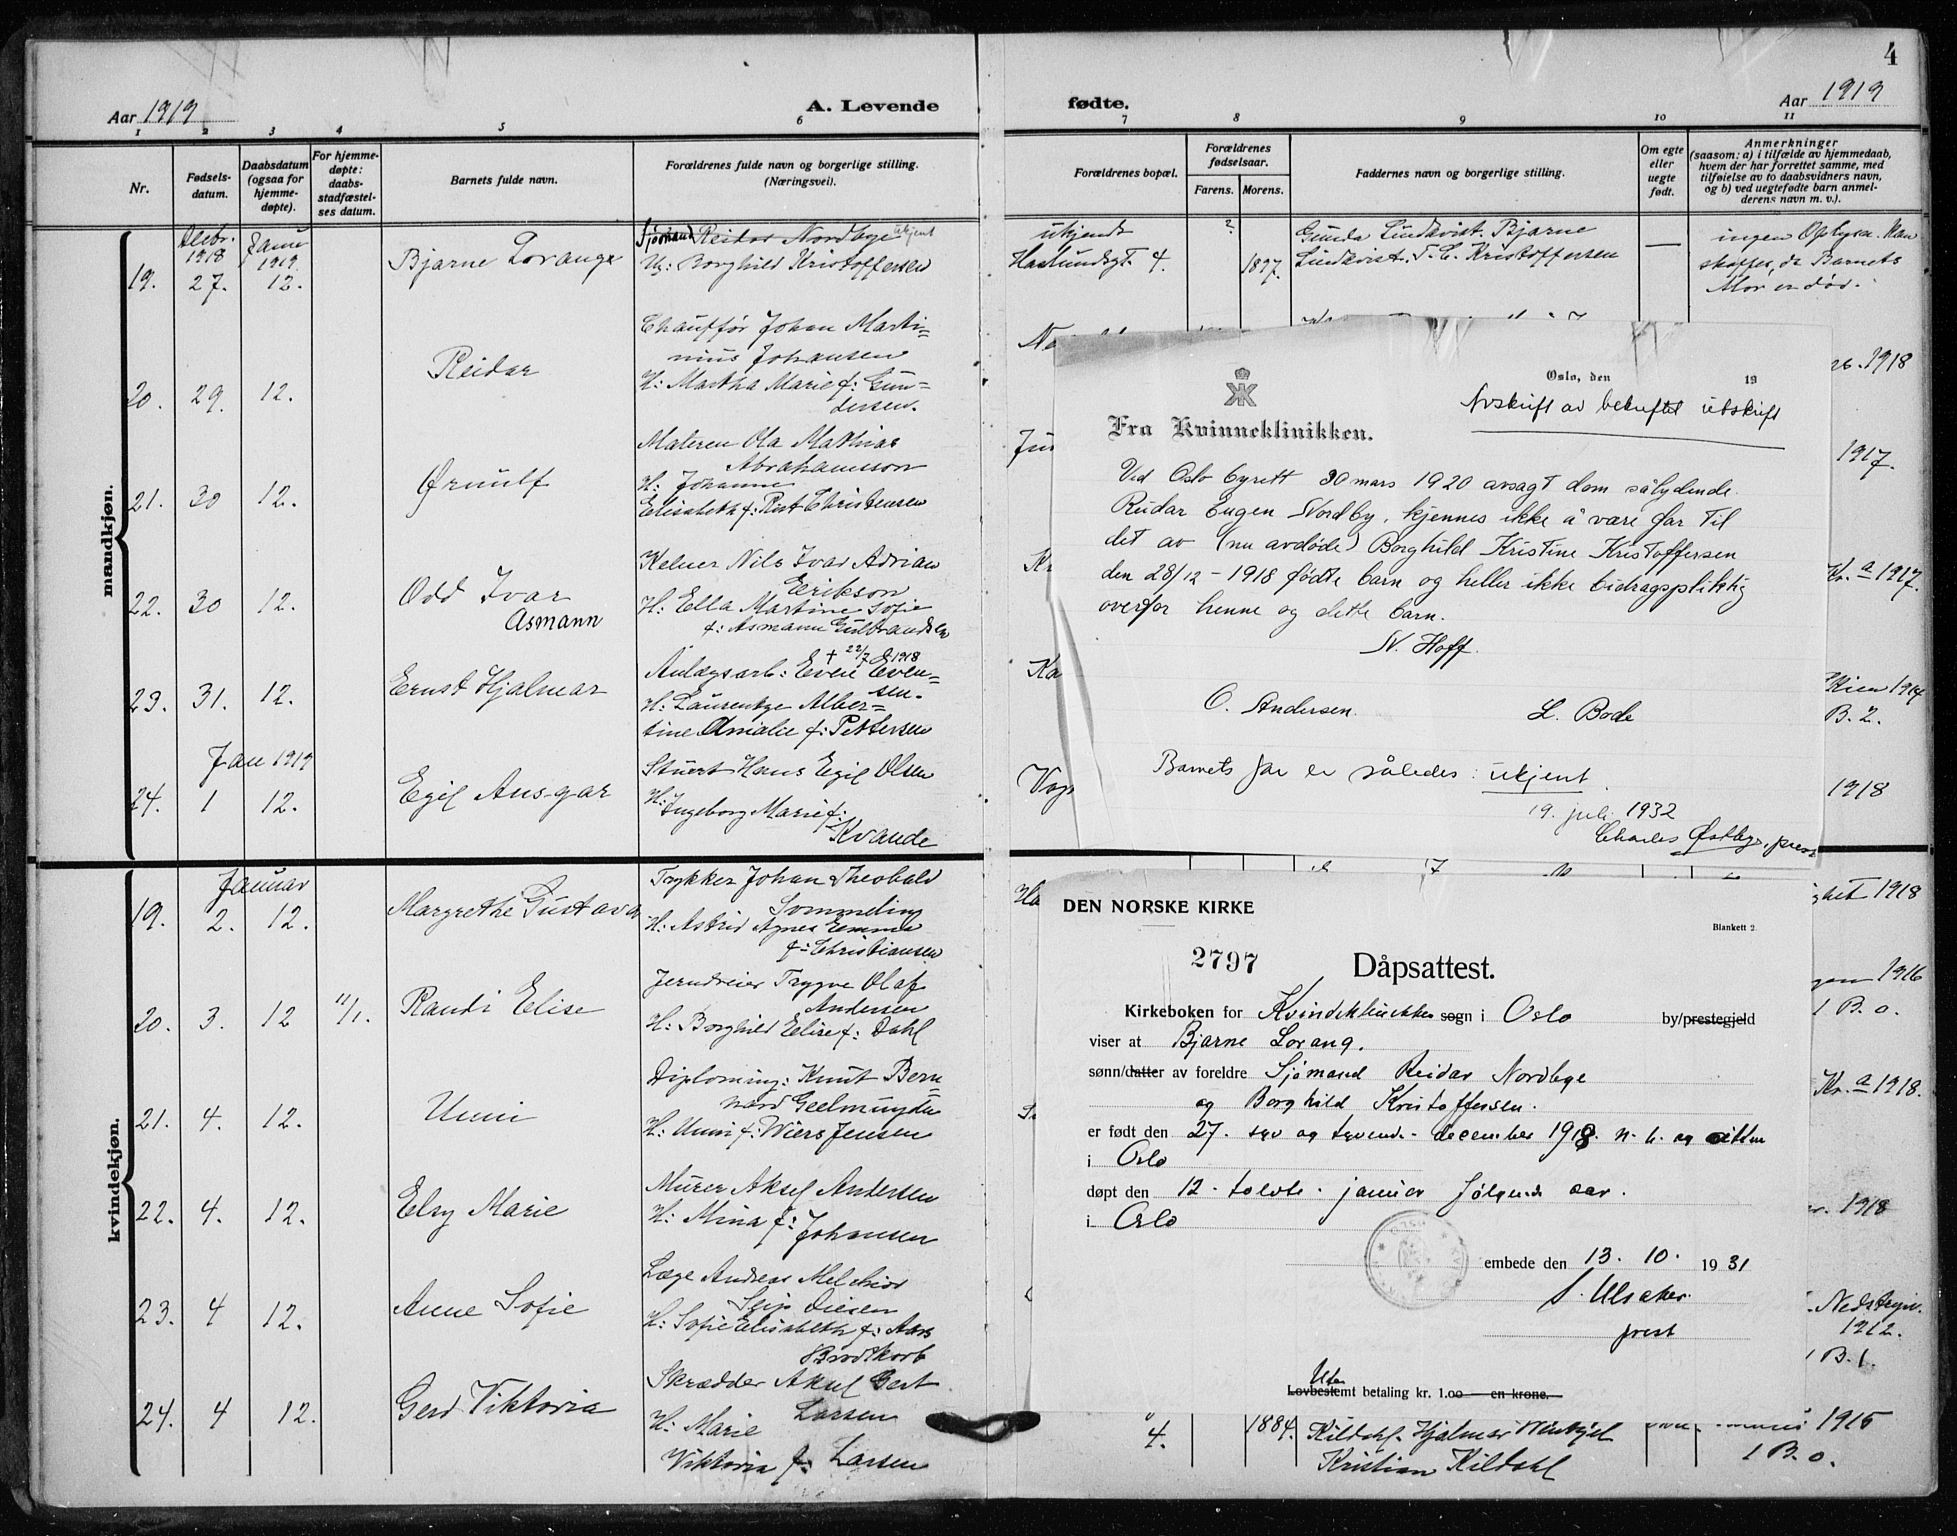 4
Aar 1919
A. Levende
fødte.
Aar 1919
1 2 3 4 5 6 7 8 9 10 11
Nr.
Fødsels-
datum.
Daabsdatum
(ogsaa for
hjemme-
døpte).
For hjemme-
døpte:
daabs-
stadfæstel-
ses datum.
Barnets fulde navn.
Forældrenes fulde navn og borgerlige stilling.
(Næringsvei).
Forældrenes bopæl.
Forældrenes
fødselsaar.
Farens. Morens.
Faddernes navn og borgerlige stilling.
Om egte
eller
uegte
født.
Anmerkninger
(saasom: a) i tilfælde av hjemmedaab,
hvem der har forrettet samme, med
tilføielse av to daabsvidners navn,
og b) ved uegtefødte barn anmel-
derens navn m. v.).
mandkjøn.
Decbr. 1918
Januar 1919
19. 27. 12.
Bjarne Lorang
Sjømand Reidar Nordbye ukjent
Ug: Borghild Kristoffersen
ukjendt
Haslundsgt. 4.
? 1897.
Gunda Lindkvist. Bjarne
Lindkvist. T. C. Kristoffersen
ingen Oplysn. kan
skaffes, da Barnets
Mor er død.
20. 29. 12.
Reidar
Chauffør Johan Marti=
nius Johansen
H: Martha Marie f: Gun=
dersen.
1918
21. 30 12.
Ørnulf
Maleren Ola Mathias
Abrahamsson
H: Johanne
Elisabeth f: Rist Christensen
1917.
22. 30 12.
Odd Ivar
Asmann
Kelner Nils Ivar Adrian
Erikson
H: Ella Martine Sofie
f: Asmann Gulbrandsen
Kr.a 1917.
23. 31. 12.
Ernst Hjalmar
† 22/7 1918
Anlægsarb: Even Even=
sen.
H: Laurentze Alber=
tine Amalie f: Pettersen
Skien 1914
B. 2.
Jan 1919
24. 1 12.
Egil Ansgar
Stuert Hans Egil Olsen
H: Ingeborg Marie f:
Kvande
1918
kvindekjøn.
Januar
19. 2. 12.
Margrethe Gustava
Trykker Johan Theobald
Sommelin
H: Astrid Agnes Emma
f: Christiansen
1918
20. 3. 12 11/1.
Randi Elise
Jerndreier Trygve Olaf
Andersen
H: Borghild Elise f: Dahl
1916
1 B. 0.
21. 4. 12.
Unni
Diploming: Knut Bern=
hard Geelmuyden
H: Unni f: Wiers Jensen
Kr.a 1918.
22. 4. 12.
Elsy Marie
Murer Aksel Andersen
H: Mina f:
Johansen
1918
23. 4 12.
Anne Sofie
Læge Andreas Melchior
Glip Diesen
H: Sofie Elisabeth f: Aars
Brodtkorb
Nedstryn.
1912.
1 B. 1.
24. 4 12.
Gerd Viktoria
Skrædder Aksel Gert
Larsen
H: Marie
Viktoria f: Larsen
4.
1884.
Kildahl. Hjalmar
Kristian Kildahl
1915
1 B. 0.
Oslo, den 19
Avskrift av bekreftet utskrift
Fra Kvinneklinikken.
Ved Oslo byrett 30 mars 1920 avsagt dom sålydende.
Reidar Eugen Nordby, kjennes ikke å være far til
det av (nu avdøde) Borghild Kristine Kristoffersen
den 28/12 – 1918 fødte barn og heller ikke bidragspliktig
overfor henne og dette barn.
N. Hoff.
O. Andersen. L. Bode
Barnets far er således: ukjent.
19. juli 1932
Charles Østby, prest
DEN NORSKE KIRKE
Blankett 2.
2797 Dåpsattest.
Kirkeboken for Kvindeklinikken sogn i Oslo by/prestegjeld
viser at Bjarne Lorang.
sønn/datter av foreldre Sjømand Reidar Nordbye
og Borghild Kristoffersen.
er født den 27. syv og tyvende december 1918. n. h. og atten
i Oslo
døpt den 12. tolvte. januar følgende aar.
i Oslo
embede den 13. 10. 1931
S. Ulsaker.
prest
Uten
Lovbestemt betaling kr. 1.00 — en krone.